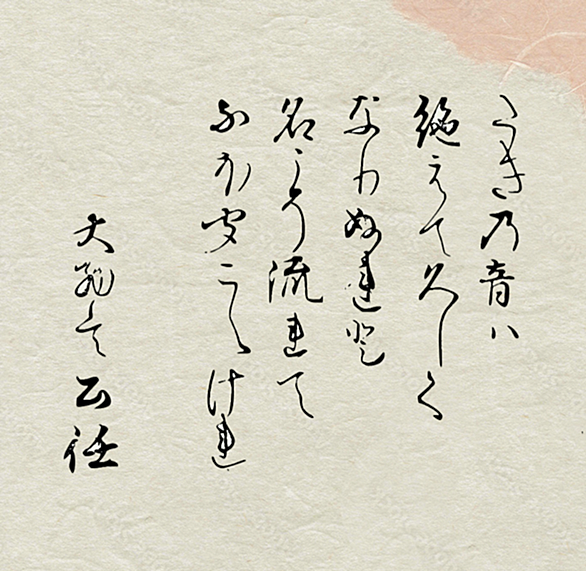 たき乃音ハ
絶えて久しく
なりぬ連登
名こそ流連て
なほ聞こえけ連
大納言公任